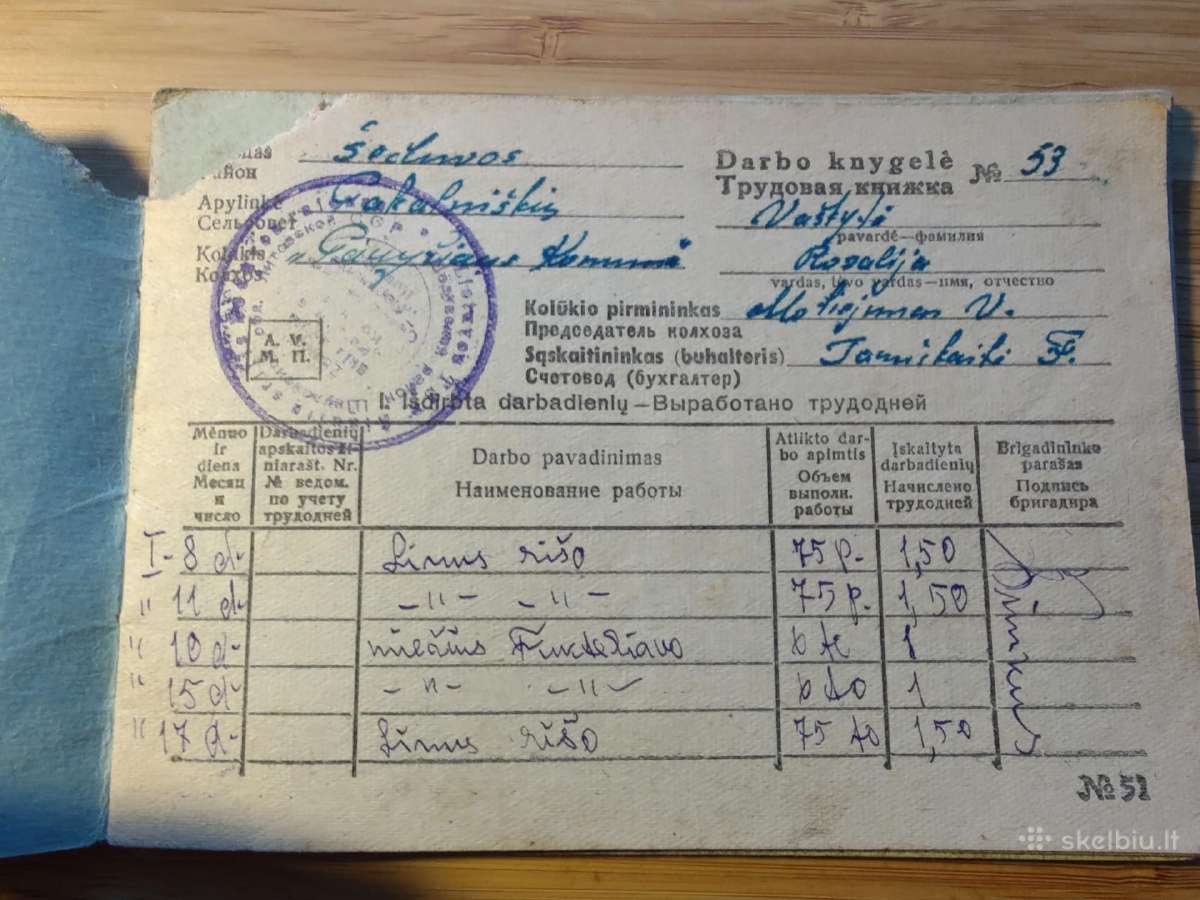 Šeduvos
Район
Apylinkė Pakalniškių
Сельсовет
Kolūkis „Paryžiaus Komuna
Колхоз
Darbo knygelė № 53
Трудовая книжка
Vaštytė
pavardė—фамилия
Rozalija
vardas, tėvo vardas—имя, отчество
Kolūkio pirmininkas V.
Председатель колхоза
Sąskaitininkas (buhalteris) F.
Счетовод (бухгалтер)
A. V.
М. П.
I. Išdirbta darbadienių—Выработано трудодней
Mėnuo ir diena Месяц и число
Darbadienių apskaitos žiniarašt. Nr. № ведом. по учету трудодней
Darbo pavadinimas Наименование работы
Atlikto darbo apimtis Объем выполн. работы
Įskaityta darbadienių Начислено трудодней
Brigadininko parašas Подпись бригадира
I-8 d- Linus rišo 75 p. 1,50
" 11 d- -"- -"- 75 p. 1,50
" 10 d- 1
" 15 d- -"- -"- 1
" 17 d- Linus rišo 75 1,50
№ 51
skelbiu.lt